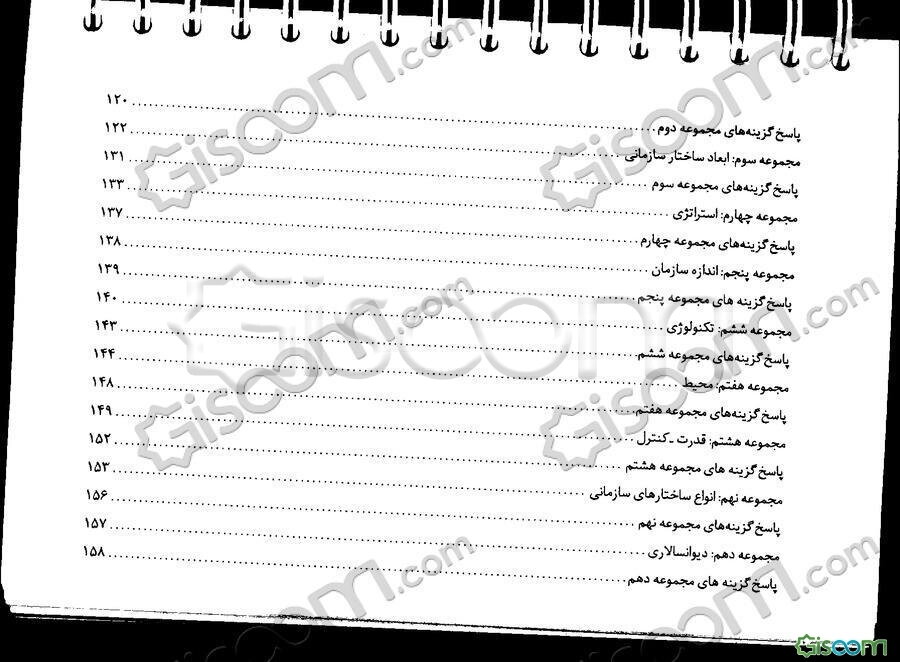 پاسخ گزینه‌های مجموعه دوم ۱۲۰
مجموعه سوم: ابعاد ساختار سازمانی ۱۲۲
پاسخ گزینه‌های مجموعه سوم ۱۳۱
مجموعه چهارم: استراتژی ۱۳۳
پاسخ گزینه‌های مجموعه چهارم ۱۳۷
مجموعه پنجم: اندازه سازمان ۱۳۸
پاسخ گزینه های مجموعه پنجم ۱۳۹
مجموعه ششم: تکنولوژی ۱۴۰
پاسخ گزینه‌های مجموعه ششم ۱۴۳
مجموعه هفتم: محیط ۱۴۴
پاسخ گزینه‌های مجموعه هفتم ۱۴۸
مجموعه هشتم: قدرت ـ کنترل ۱۴۹
پاسخ گزینه های مجموعه هشتم ۱۵۲
مجموعه نهم: انواع ساختارهای سازمانی ۱۵۳
پاسخ گزینه‌های مجموعه نهم ۱۵۶
مجموعه دهم: دیوانسالاری ۱۵۷
پاسخ گزینه های مجموعه دهم ۱۵۸
Gisoom.com
Gisoom.com
Gisoom
Gisoom.com
Gisoom.com
Gisoom.com
Gisoom.com
Gisoom.com